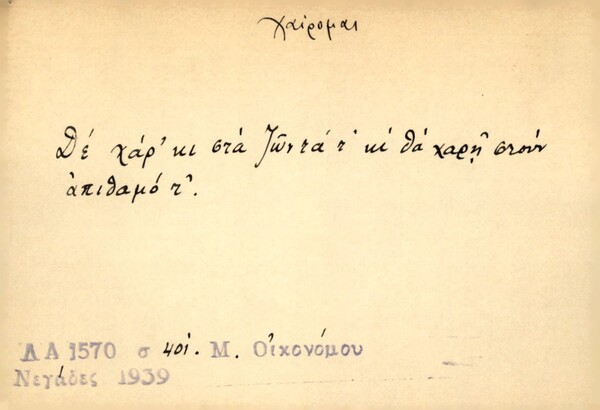 χαίρομαι
Δέ χάρ'κι στά ζῶντά τ' κί θά χαρῇ στούν
ἀπιθαμό τ'.
ΛΑ 1570 σ 401. Μ. Οἰκονόμου
Νεγάδες 1939